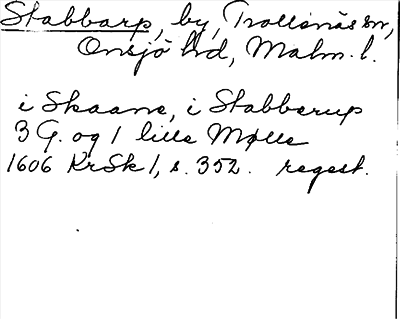 Stabbarp, by, Trollenäs sn,
Onsjö hd, Malm. l.
i Skaane, i Stabberup
3 G. og 1 lille Mølle
1606 KrSk 1, s. 352. regest.